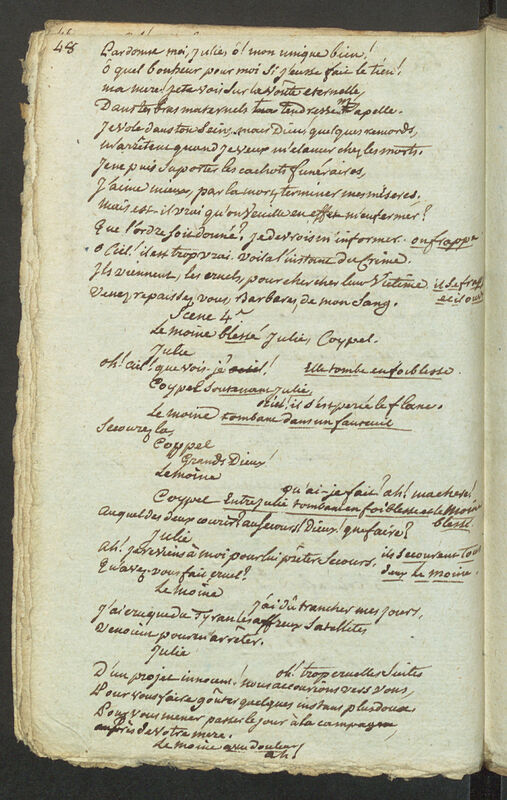 48
Pardonne moi, Julie, ô! mon unique bien!
Ô quel bonheur pour moi si j'eusse fait le tien!
ma mere! je te vois sur la voûte eternelle,
Dans tes bras maternels ta tendresse m'apelle.
Je vole dans ton Sein, mais Dieu! quelques remords,
m'arrêtent quand je veux m'elancer chez les morts.
Je ne puis suporter les cachots funéraires,
J'aime mieux, par la mort, terminer mes miséres.
mais est-il vrai qu'on veuille en effet m'enfermer?
Que l'ordre soit donné? je devrois m'informer. on frappe
O Ciel! il est trop vrai. voilà l'instant du Crime.
Ils viennent, les cruels, pour chercher leur Victime. il se frappe
Venez repaissez vous, Barbares, de mon Sang. et il ouvre
Scene 4e.
Le Moine blessé, Julie, Coypel.
Julie
oh! Ciel! que vois-je? Elle tombe en foiblesse.
Coypel Soutenant Julie
Ô Ciel! il s'est percé le flanc.
Le moine tombant dans un fauteuil
Secourez la,
Coypel
Grands Dieux!
Le Moine
Qu'ai-je fait? ah! ma chere!
Coypel Entre Julie tombant en foiblesse et le Moine blessé.
Auquel des deux courir? au secours! Dieux! que faire?
Julie
Ah! je reviens à moi pour lui prêter Secours. ils secourent tous deux le Moine.
Qu'avez-vous fait cruel?
Le Moine
J'ai dû trancher mes jours,
J'ai cru que du Tyran les affreux Satellites
Venoient pour m'arrêter.
Julie
oh! trop cruelles Suites
D'un projet innocent! nous accourions vers vous,
Pour vous faire goûter quelques instans plus doux
Pour vous mener passer le jour à la campagne,
auprès de votre mere.
Le Moine avec douleur
ah!